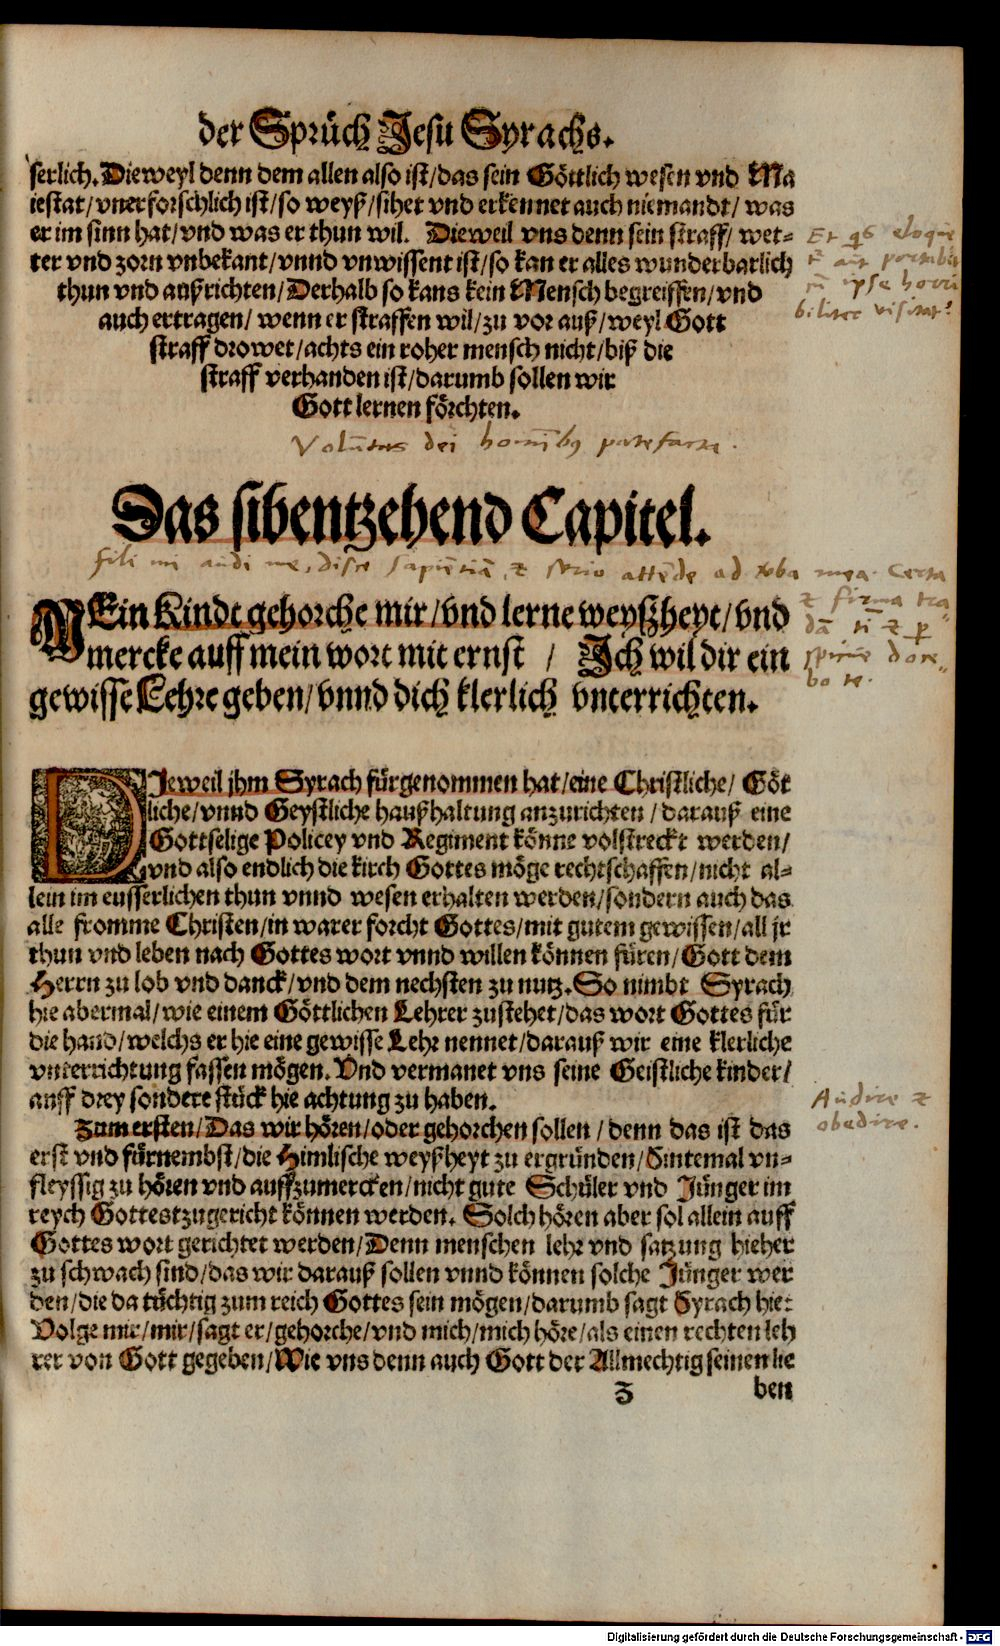 der Sprüch Jesu Syrachs.
serlich. Dieweyl denn dem allen also ist/das sein Göttlich wesen vnd Ma
iestat/vnerforschlich ist/so weyß/sihet vnd erkennet auch niemandt/ was
er im sinn hat/vnd was er thun wil. Dieweil vns denn sein straff/ wet-
ter vnd zorn vnbekant/vnnd vnwissent ist/so kan er alles wunderbarlich
thun vnd außrichten/Derhalb so kans kein Mensch begreiffen/vnd
auch ertragen/ wenn er straffen wil/zu vor auß/weyl Gott
straff drowet/achts ein roher mensch nicht/biß die
straff verhanden ist/darumb sollen wir
Gott lernen förchten.
Et qs eloque
ipse horri
biliter visitat?
Volūtas dei homībꝰ patefacta.
Das sibentzehend Capitel.
fili mi audi me, disce sapiētiā, et serio attēde ad verba mea. Certa
et firma tra
dā
MEin Kindt gehorche mir/vnd lerne weyßheyt/vnd
mercke auff mein wort mit ernst / Ich wil dir ein
gewisse Lehre geben/vnnd dich klerlich vnterrichten.
DJeweil jhm Syrach fürgenommen hat/eine Christliche/ Göt
liche/vnnd Geystliche haußhaltung anzurichten/darauß eine
Gottselige Policey vnd Regiment könne volstreckt werden/
vnd also endlich die kirch Gottes möge rechtschaffen/nicht al-
lein im eusserlichen thun vnnd wesen erhalten werden/sondern auch das
alle fromme Christen/in warer forcht Gottes/mit gutem gewissen/all jr
thun vnd leben nach Gottes wort vnnd willen können füren/Gott dem
Herrn zu lob vnd danck/vnd dem nechsten zu nutz. So nimbt Syrach
hie abermal/wie einem Göttlichen Lehrer zustehet/das wort Gottes für
die hand/welchs er hie eine gewisse Lehr nennet/darauß wir eine klerliche
vnterrichtung fassen mögen. Vnd vermanet vns seine Geistliche kinder/
auff drey sondere stück hie achtung zu haben.
Audire et
obedire.
Zum ersten/Das wir hören/oder gehorchen sollen/denn das ist das
erst vnd fürnembst/die Himlische weyßheyt zu ergründen/Sintemal vn-
fleyssig zu hören vnd auffzumercken/nicht gute Schüler vnd Jünger im
reych Gottes tzugericht können werden. Solch hören aber sol allein auff
Gottes wort gerichtet werden/Denn menschen lehr vnd satzung hieher
zu schwach sind/das wir darauß sollen vnnd können solche Jünger wer
den/die da tüchtig zum reich Gottes sein mögen/darumb sagt Syrach hie:
Volge mir/mir/sagt er/gehorche/vnd mich/mich höre/als einen rechten leh
rer von Gott gegeben/Wie vns denn auch Gott der Allmechtig seinen lie
Z ben
Digitalisierung gefördert durch die Deutsche Forschungsgemeinschaft - DFG